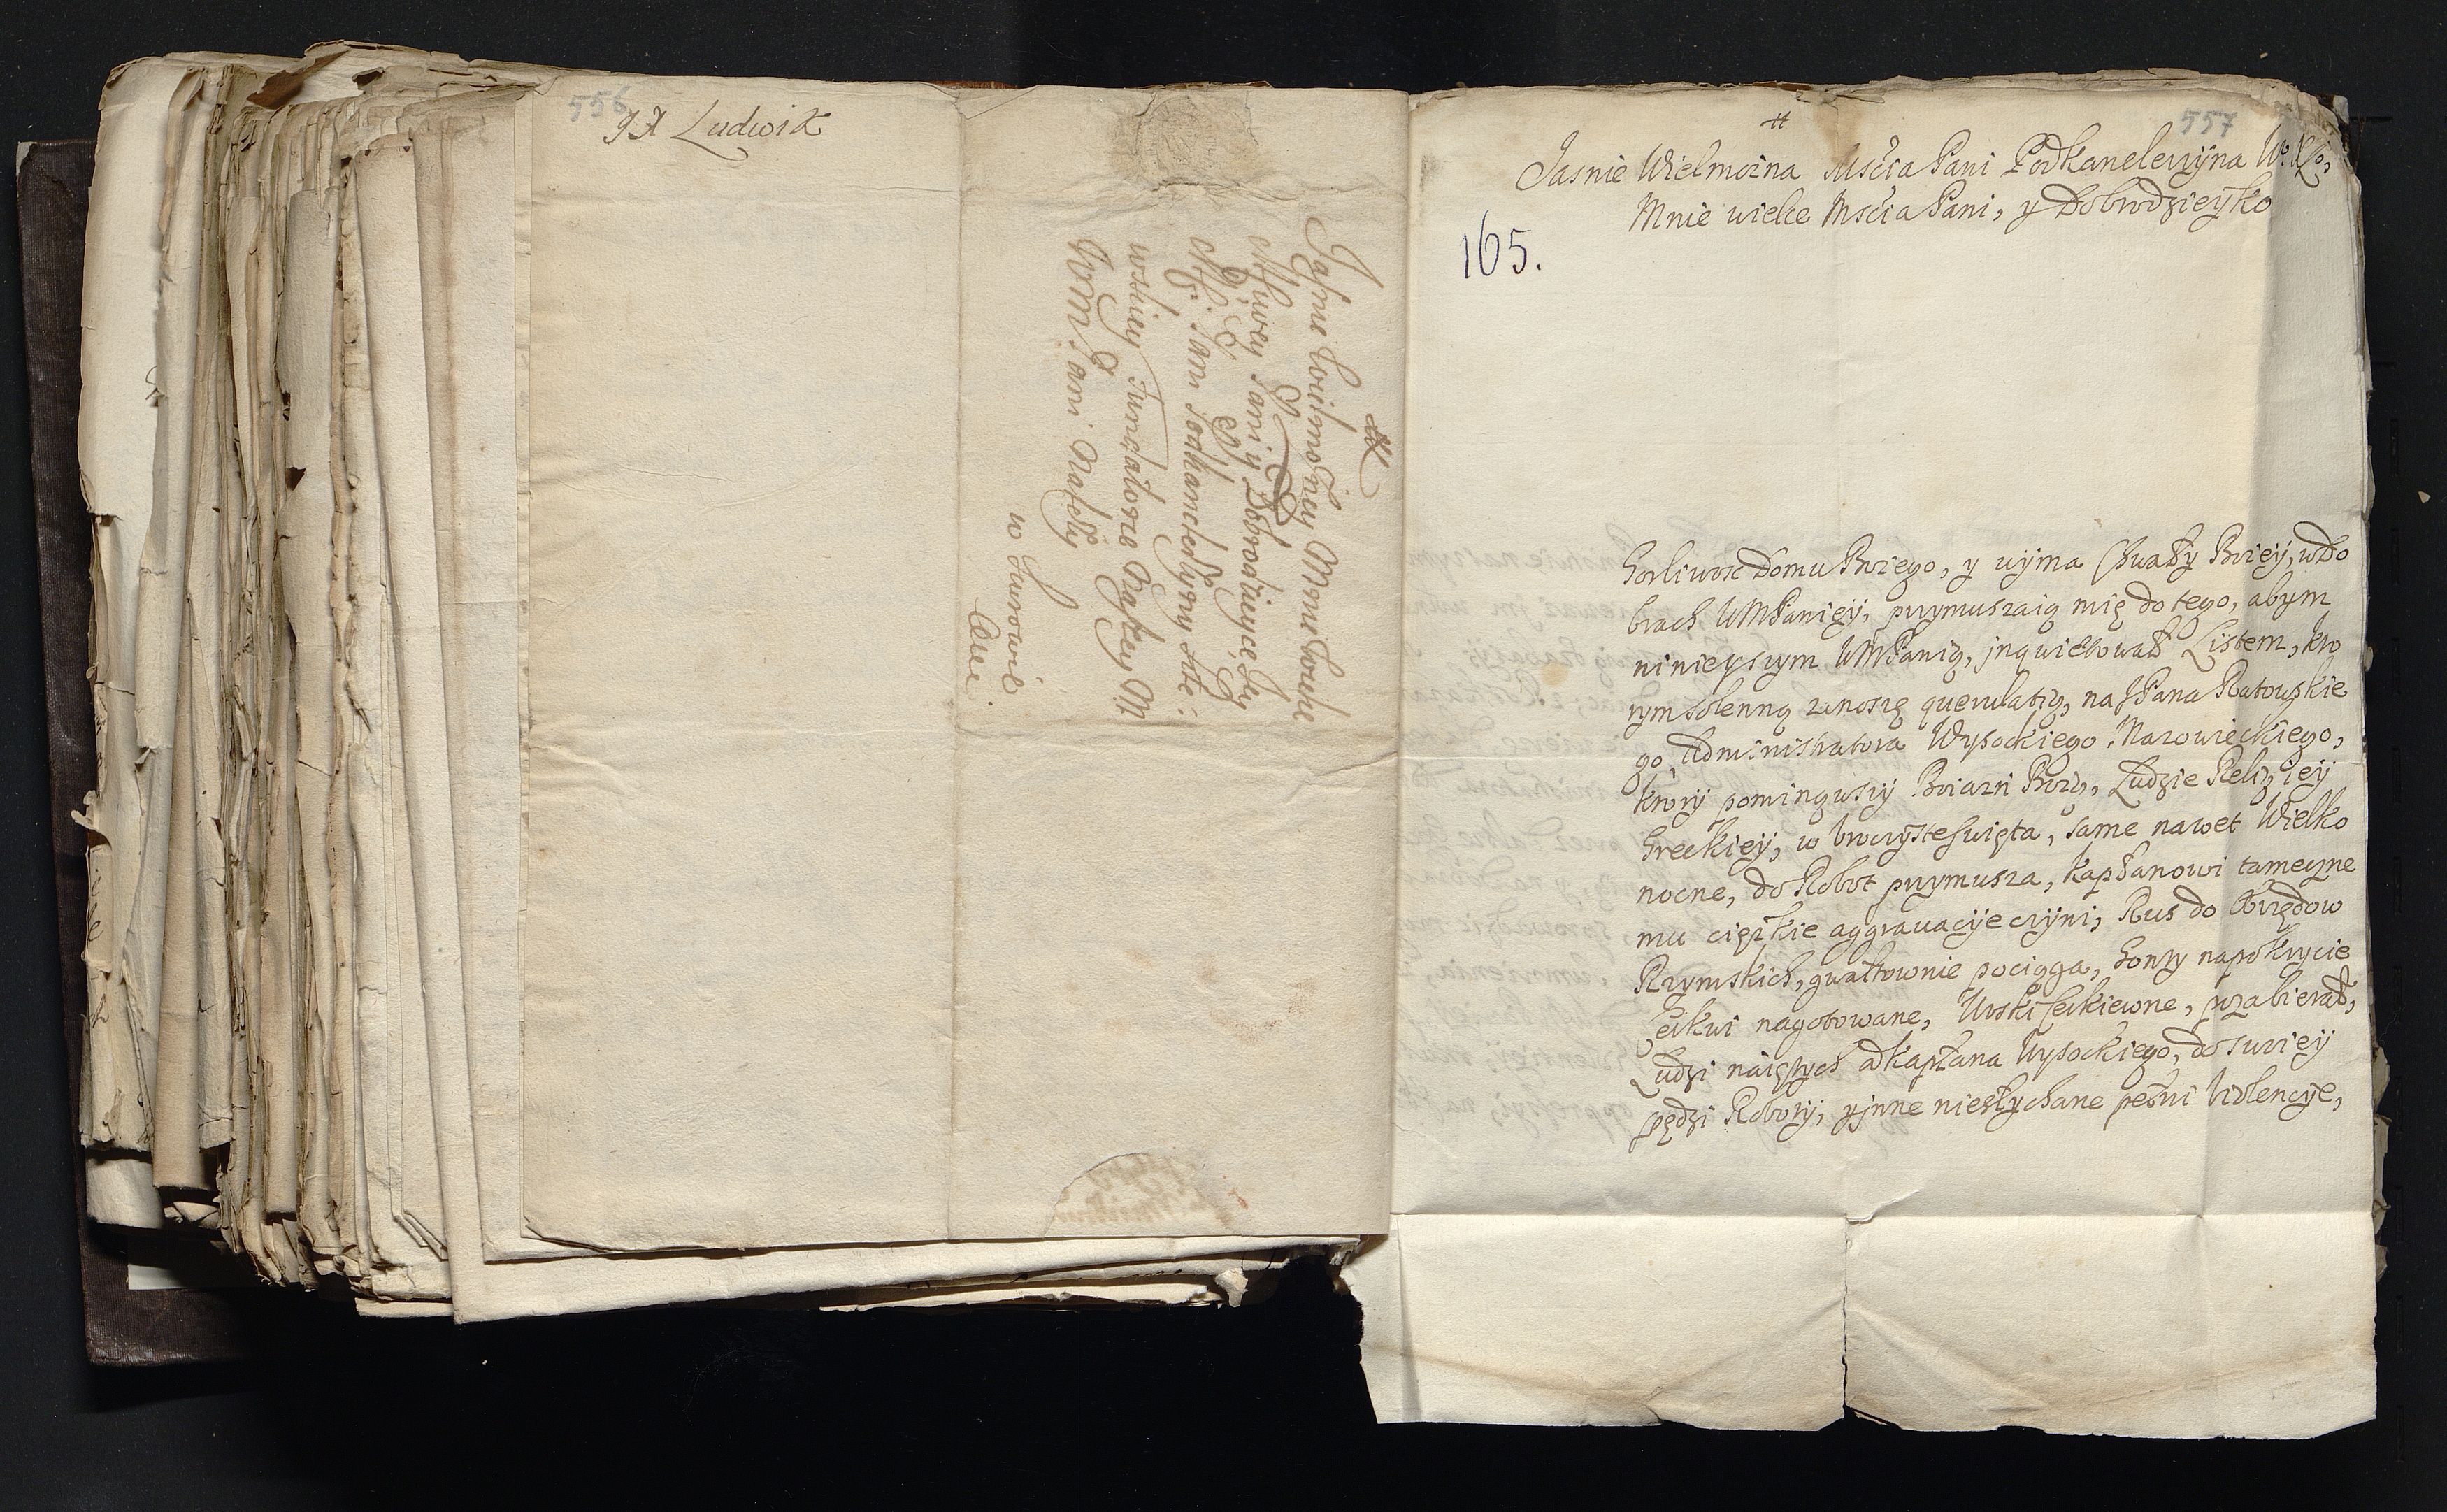 556
JX Ludwik
Jasnie Wielmozney Mnie Wielce
Msciwey Pani y Dobrodzieyce Jey
Msci Pani Podkanclerzyny Lite:
wskiey Fundatorce Naszey M
WM Pani Naszey
w Surowie
557
Jasnie Wielmożna Mścia Pani Podkanclerzyna W.X.L.,
Mnie wielce Mścia Pani, y Dobrodzieyko
165.
Gorliwosc Domu Bożego, y uyma Chwały Bożey, w Do
brach WMPaniey, przymuszaią mię do tego, abym
ninieyszym WMPanią, inquietował Listem, kto
rym solenną zanoszę querulatią, na JPana Ratowskie
go Administratora Wysockiego Mazowieckiego,
ktory pominąwszy Boiazń Bożą, Ludzie Religiey
Greckiey, w Uroczyste swięta, same nawet Wielko
nocne, do Robot przymusza, Kapłanowi tameczne
mu cięzkie aggravacye czyni, Rus do Obrzędow
Rzymskich, gwałtownie pociąga, Gonty na pokrycie
Cerkwi nagotowane, Woski Cerkiewne, pozabierał,
Ludzi naiętych od Kapłana Wysockiego, do swoiey
pędzi Roboty, y inne niesłychane pełni Violencye,